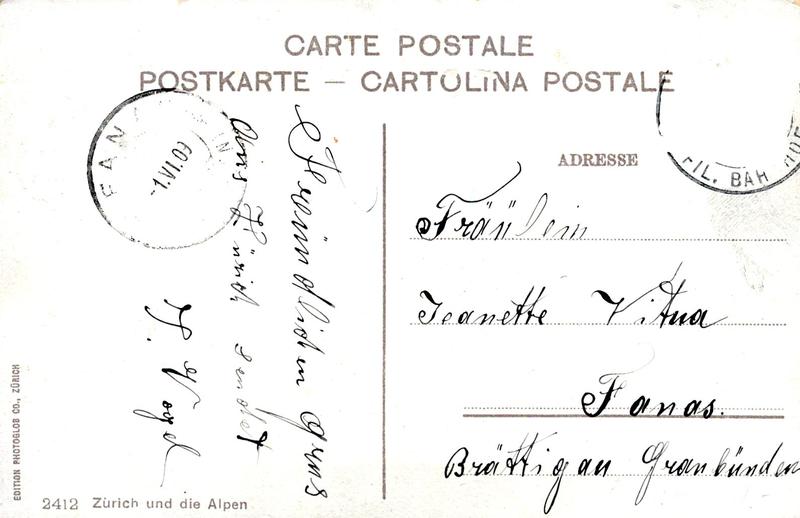 CARTE POSTALE
POSTKARTE – CARTOLINA POSTALE
1.VI.09
FIL. BAH
Freündlichen gruss
Aus Zürich sendet
H. Vogel
ADRESSE
Fräülein
Jeanette Vitua
Fanas.
Brättigau Graubünden
EDITION PHOTOGLOB CO., ZÜRICH
2412 Zürich und die Alpen